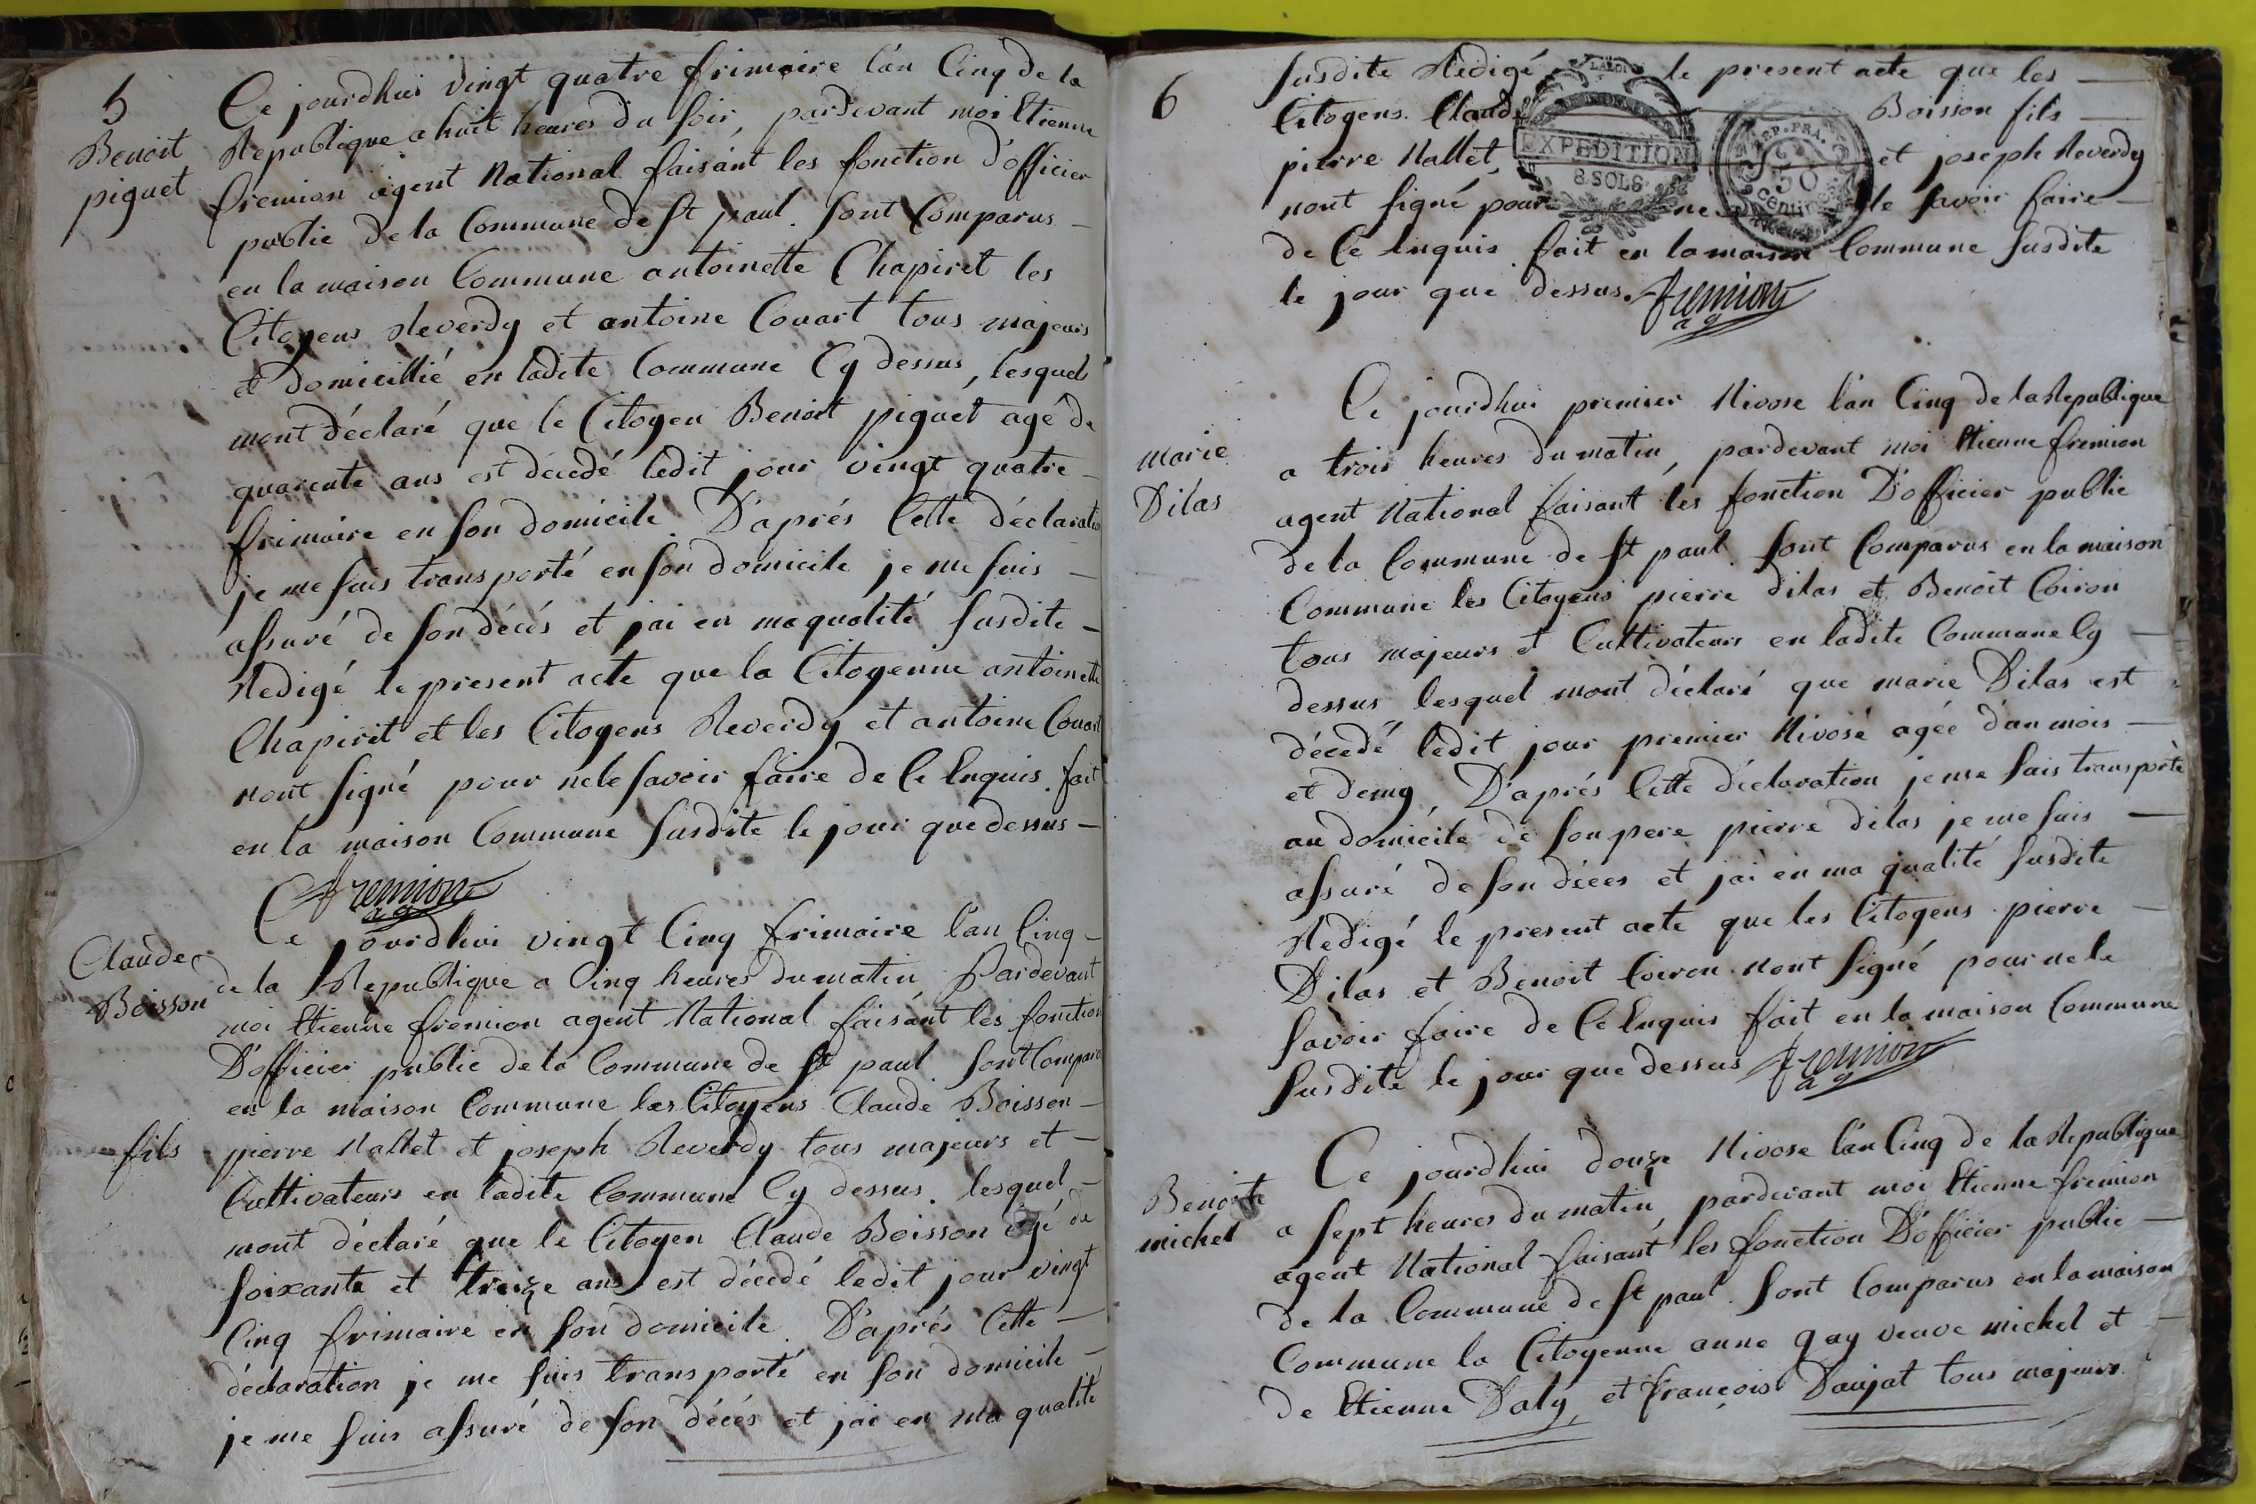 5
Benoit
piguet
Ce jourdhui vingt quatre frimaire l'an Cinq de la
Republique a huit heures du soir, pardevant moi Etienne
fremion agent National faisant les fonction d'officier
public de la Commune de st paul. sont Comparus
en la maison Commune antoinette Chapiret les
Citoyens Reverdy et antoine Couart tous majeurs
et Domicillié en ladite Commune Cy dessus, lesquels
mont déclaré que le Citoyen Benoit piguet agé de
quarente ans est décedé ledit jour vingt quatre
frimaire en son domicile. D'aprés Cette déclaratio
je me suis transporté en son domicile je me suis
assuré de son décés et jai en ma qualité susdite
Redigé le present acte que la Citoyenne antoinette
Chapiret et les Citoyens Reverdy et antoine Couart
nont signé pour ne le savoir faire de Ce Enquis. fait
en la maison Commune susdite le jour que dessus
fremion
ag
Claude
Boisson
fils
Ce jourdhui vingt Cinq frimaire l'an Cinq
de la Republique a Cinq heures du matin Pardevant
moi Etienne fremion agent National faisant les fonction
D'officier public de la Commune de st paul. sont Comparu
en la maison Commune les Citoyens Claude Boisson
pierre Nallet et joseph Reverdy tous majeurs et
Cultivateurs en ladite Commune Cy dessus. lesquel
mont déclaré que le Citoyen Claude Boisson agé de
soixante et treize ans est décedé ledit jour vingt
Cinq frimaire en son domicile. D'aprés Cette
déclaration je me suis transporté en son domicile
je me suis assuré de son décés et jai en ma qualité
6
susdite Redigé le present acte que les
Citoyens Claude Boisson fils
pierre Nallet, et joseph Reverdy
nont signé pour ne le savoir faire
de Ce Enquis. fait en la maison Commune susdite
le jour que dessus. fremion
ag
LA LOI
EXPEDITION
8 SOLS
REP. FRA.
50
centimes
marie
Dilas
Ce jourdhui premier Nivose l'an Cinq de la Republique
a trois heures du matin, pardevant moi Etienne fremion
agent National faisant les fonction D'officier public
de la Commune de st paul. sont Comparus en la maison
Commune les Citoyens pierre dilas et Benoit Coiron
tous majeurs et Cultivateurs en ladite Commune Cy
dessus lesquel mont déclaré que marie Dilas est
décedé ledit jour premier Nivose agée d'an mois
et demy, D'aprés Cette déclaration je me suis transporté
au domicile de son pere pierre dilas je me suis
assuré de son décés et jai en ma qualité susdite
Redigé le present acte que les Citoyens pierre
Dilas et Benoit Coiron nont signé pour ne le
savoir faire de Ce Enquis fait en la maison Commune
susdite le jour que dessus fremion
ag
Benoite
michel
Ce jourdhui douze Nivose l'an Cinq de la Republique
a sept heures du matin pardevant moi Etienne fremion
agent National faisant les fonction D'officier public
de la Commune de st paul. sont Comparus en la maison
Commune la Citoyenne anne gay veuve michel et
de Etienne Daly, et françois Daujat tous majeurs